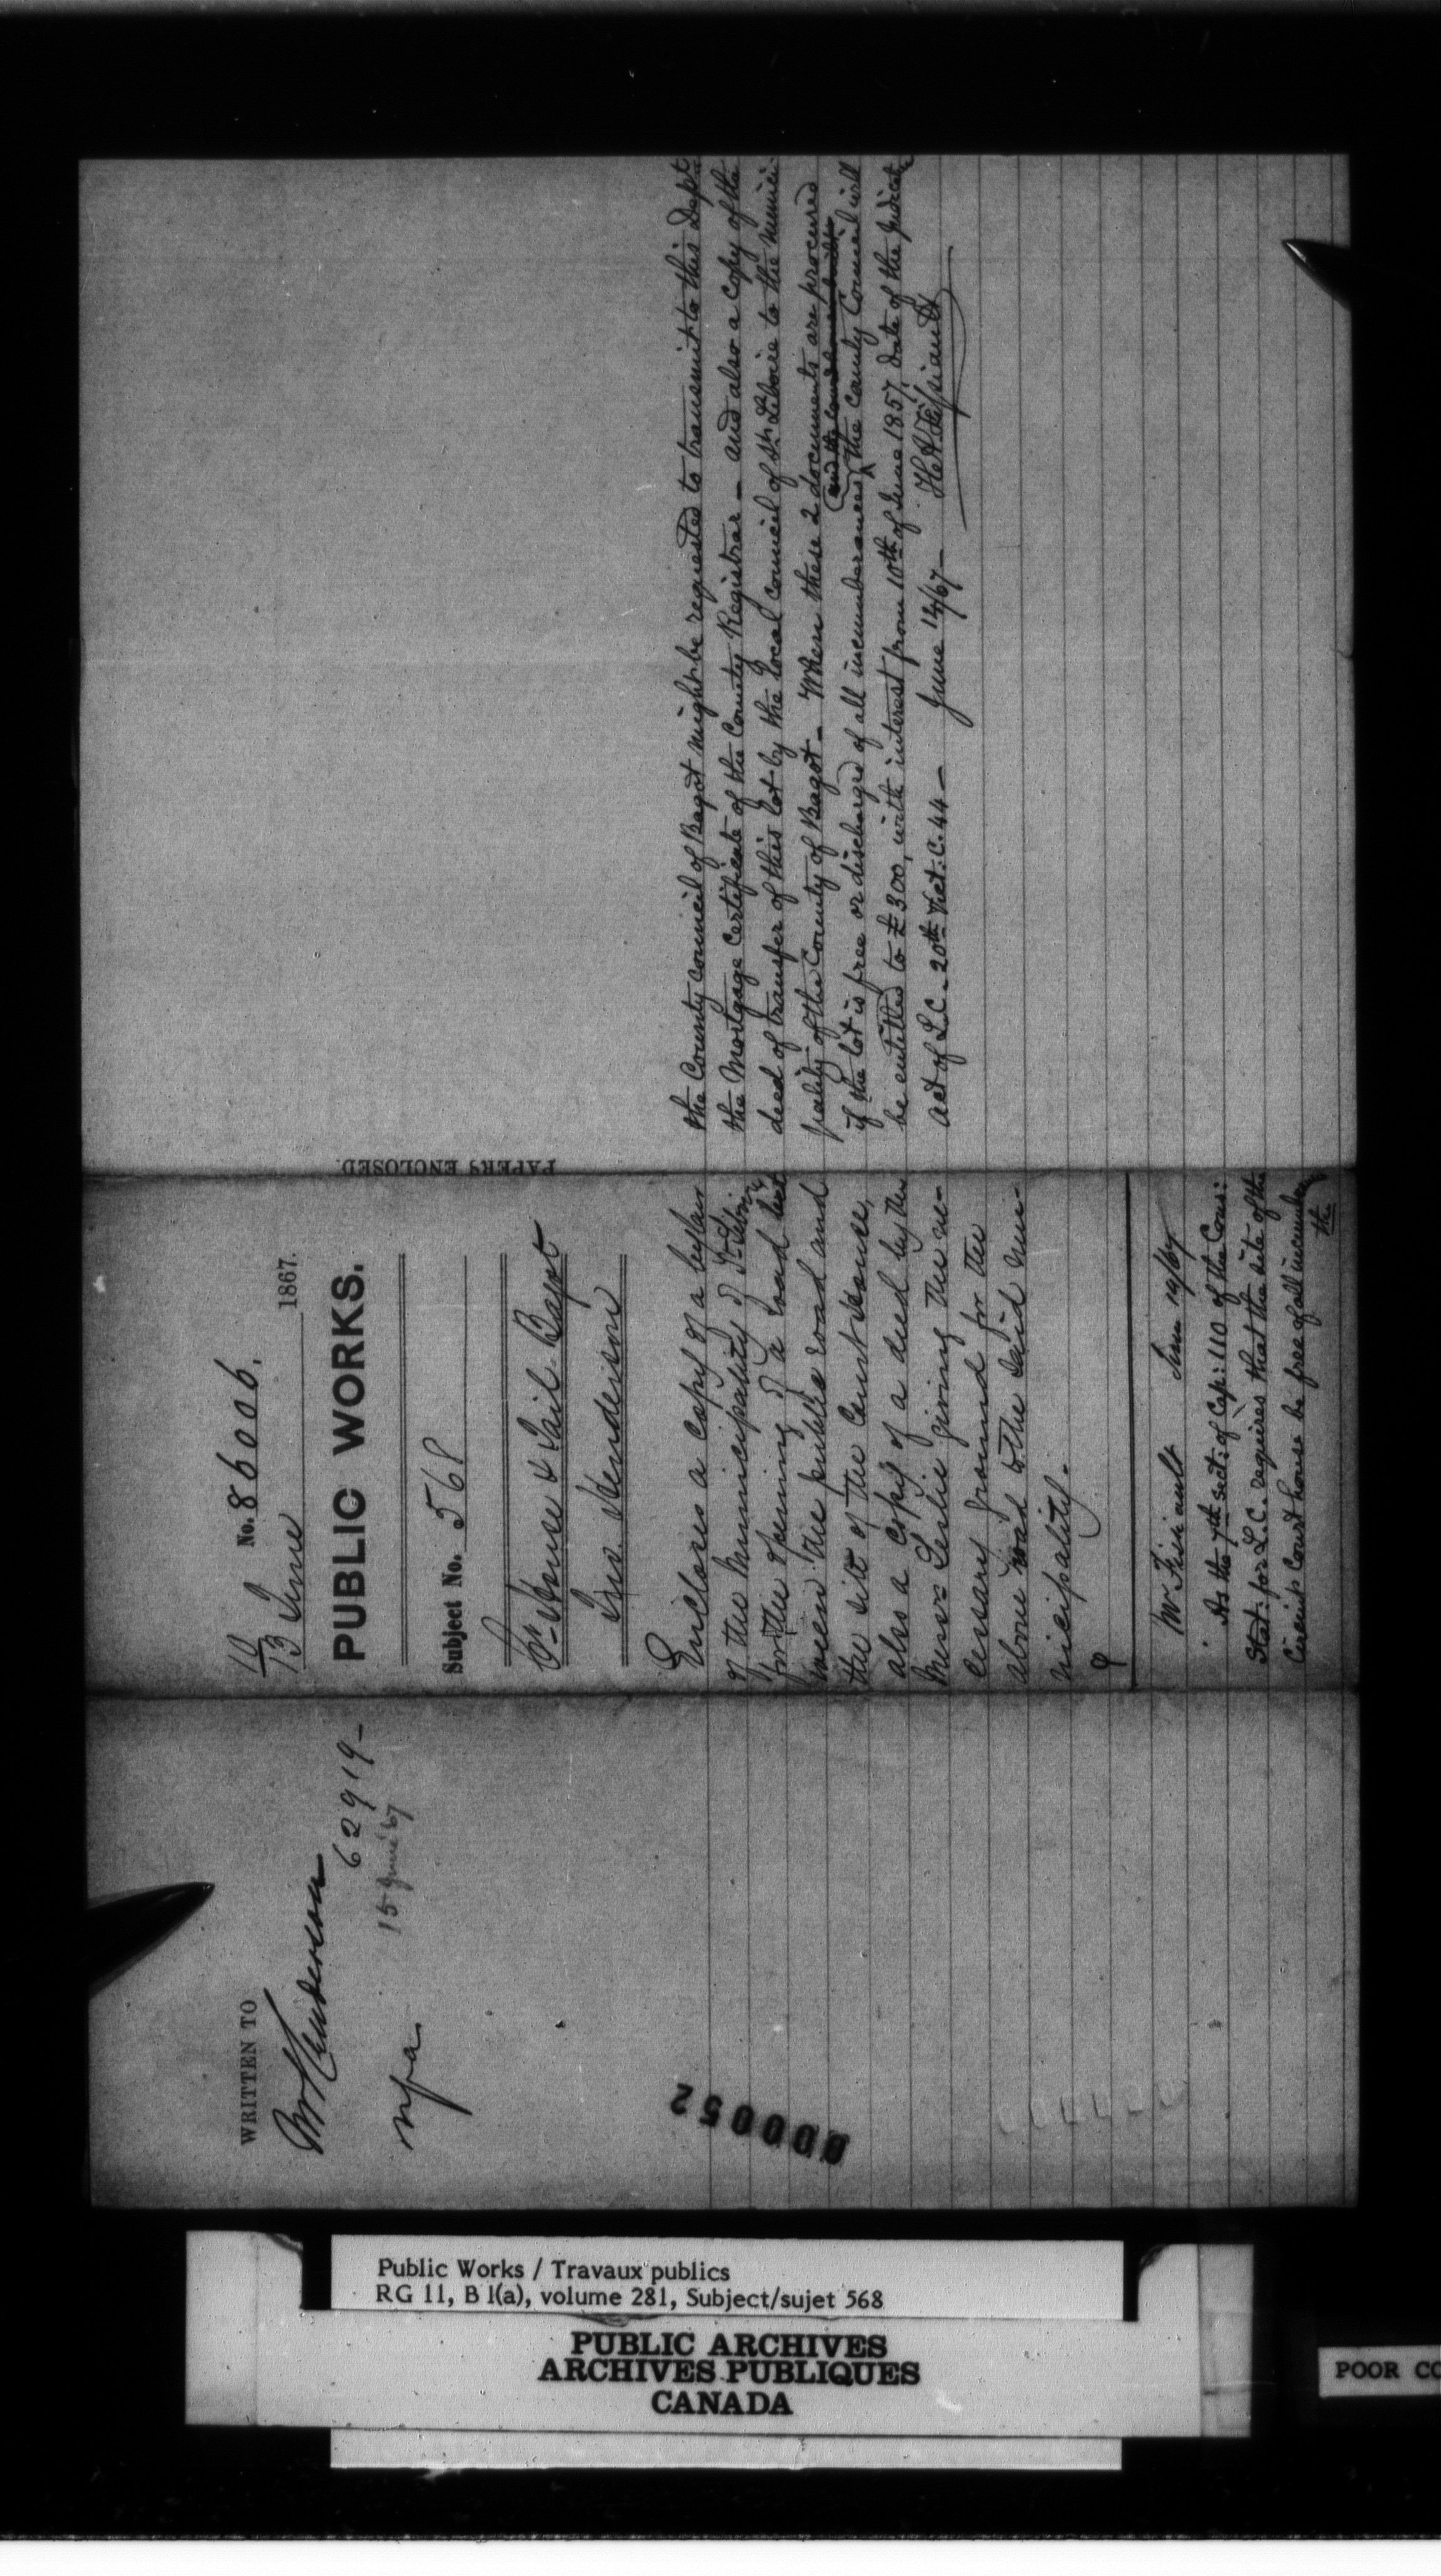 WRITTEN TO
Mr Henderson
62919 –
15 June 67
000052
10/13 June No. 86006. 1867.
PUBLIC WORKS.
Subject No. 568
Ct. House & Gail - Bagot
Jno. Henderson
Encloses a copy of a by law
of the Municipality of St. Liboire
for the opening of a road bet
ween the public road and
the site of the Court House,
also a copy of a deed by the
Messrs Leslie giving the ne-
cessary ground for the
above road to the said mu-
nicipality.
Mr Fissiault June 14/67
As the 7th sect: of Cap: 110 of the Cons:
Stat: for L.C. requires that the site of the
Circuit Court house be free of all incumbces
the
PAPERS ENCLOSED.
the County Council of Bagot might be requested to transmit to this Dept
the Mortgage certificate of the County Registrar – and also a copy of the
deed of transfer of this lot by the local council of St. Liboire to the Munici-
pality of the County of Bagot – When these 2 documents are procured
if the lot is free or discharged of all incumberances, the County Council will
be entitled to £300, with interest from 10th of June 1857, date of the Judicature
act of L.C. – 20th Vict: C. 44 – June 14/67 – H. A. Fissiault
Public Works / Travaux publics
RG 11, B 1(a), volume 281, Subject/sujet 568
PUBLIC ARCHIVES
ARCHIVES PUBLIQUES
CANADA
POOR CO